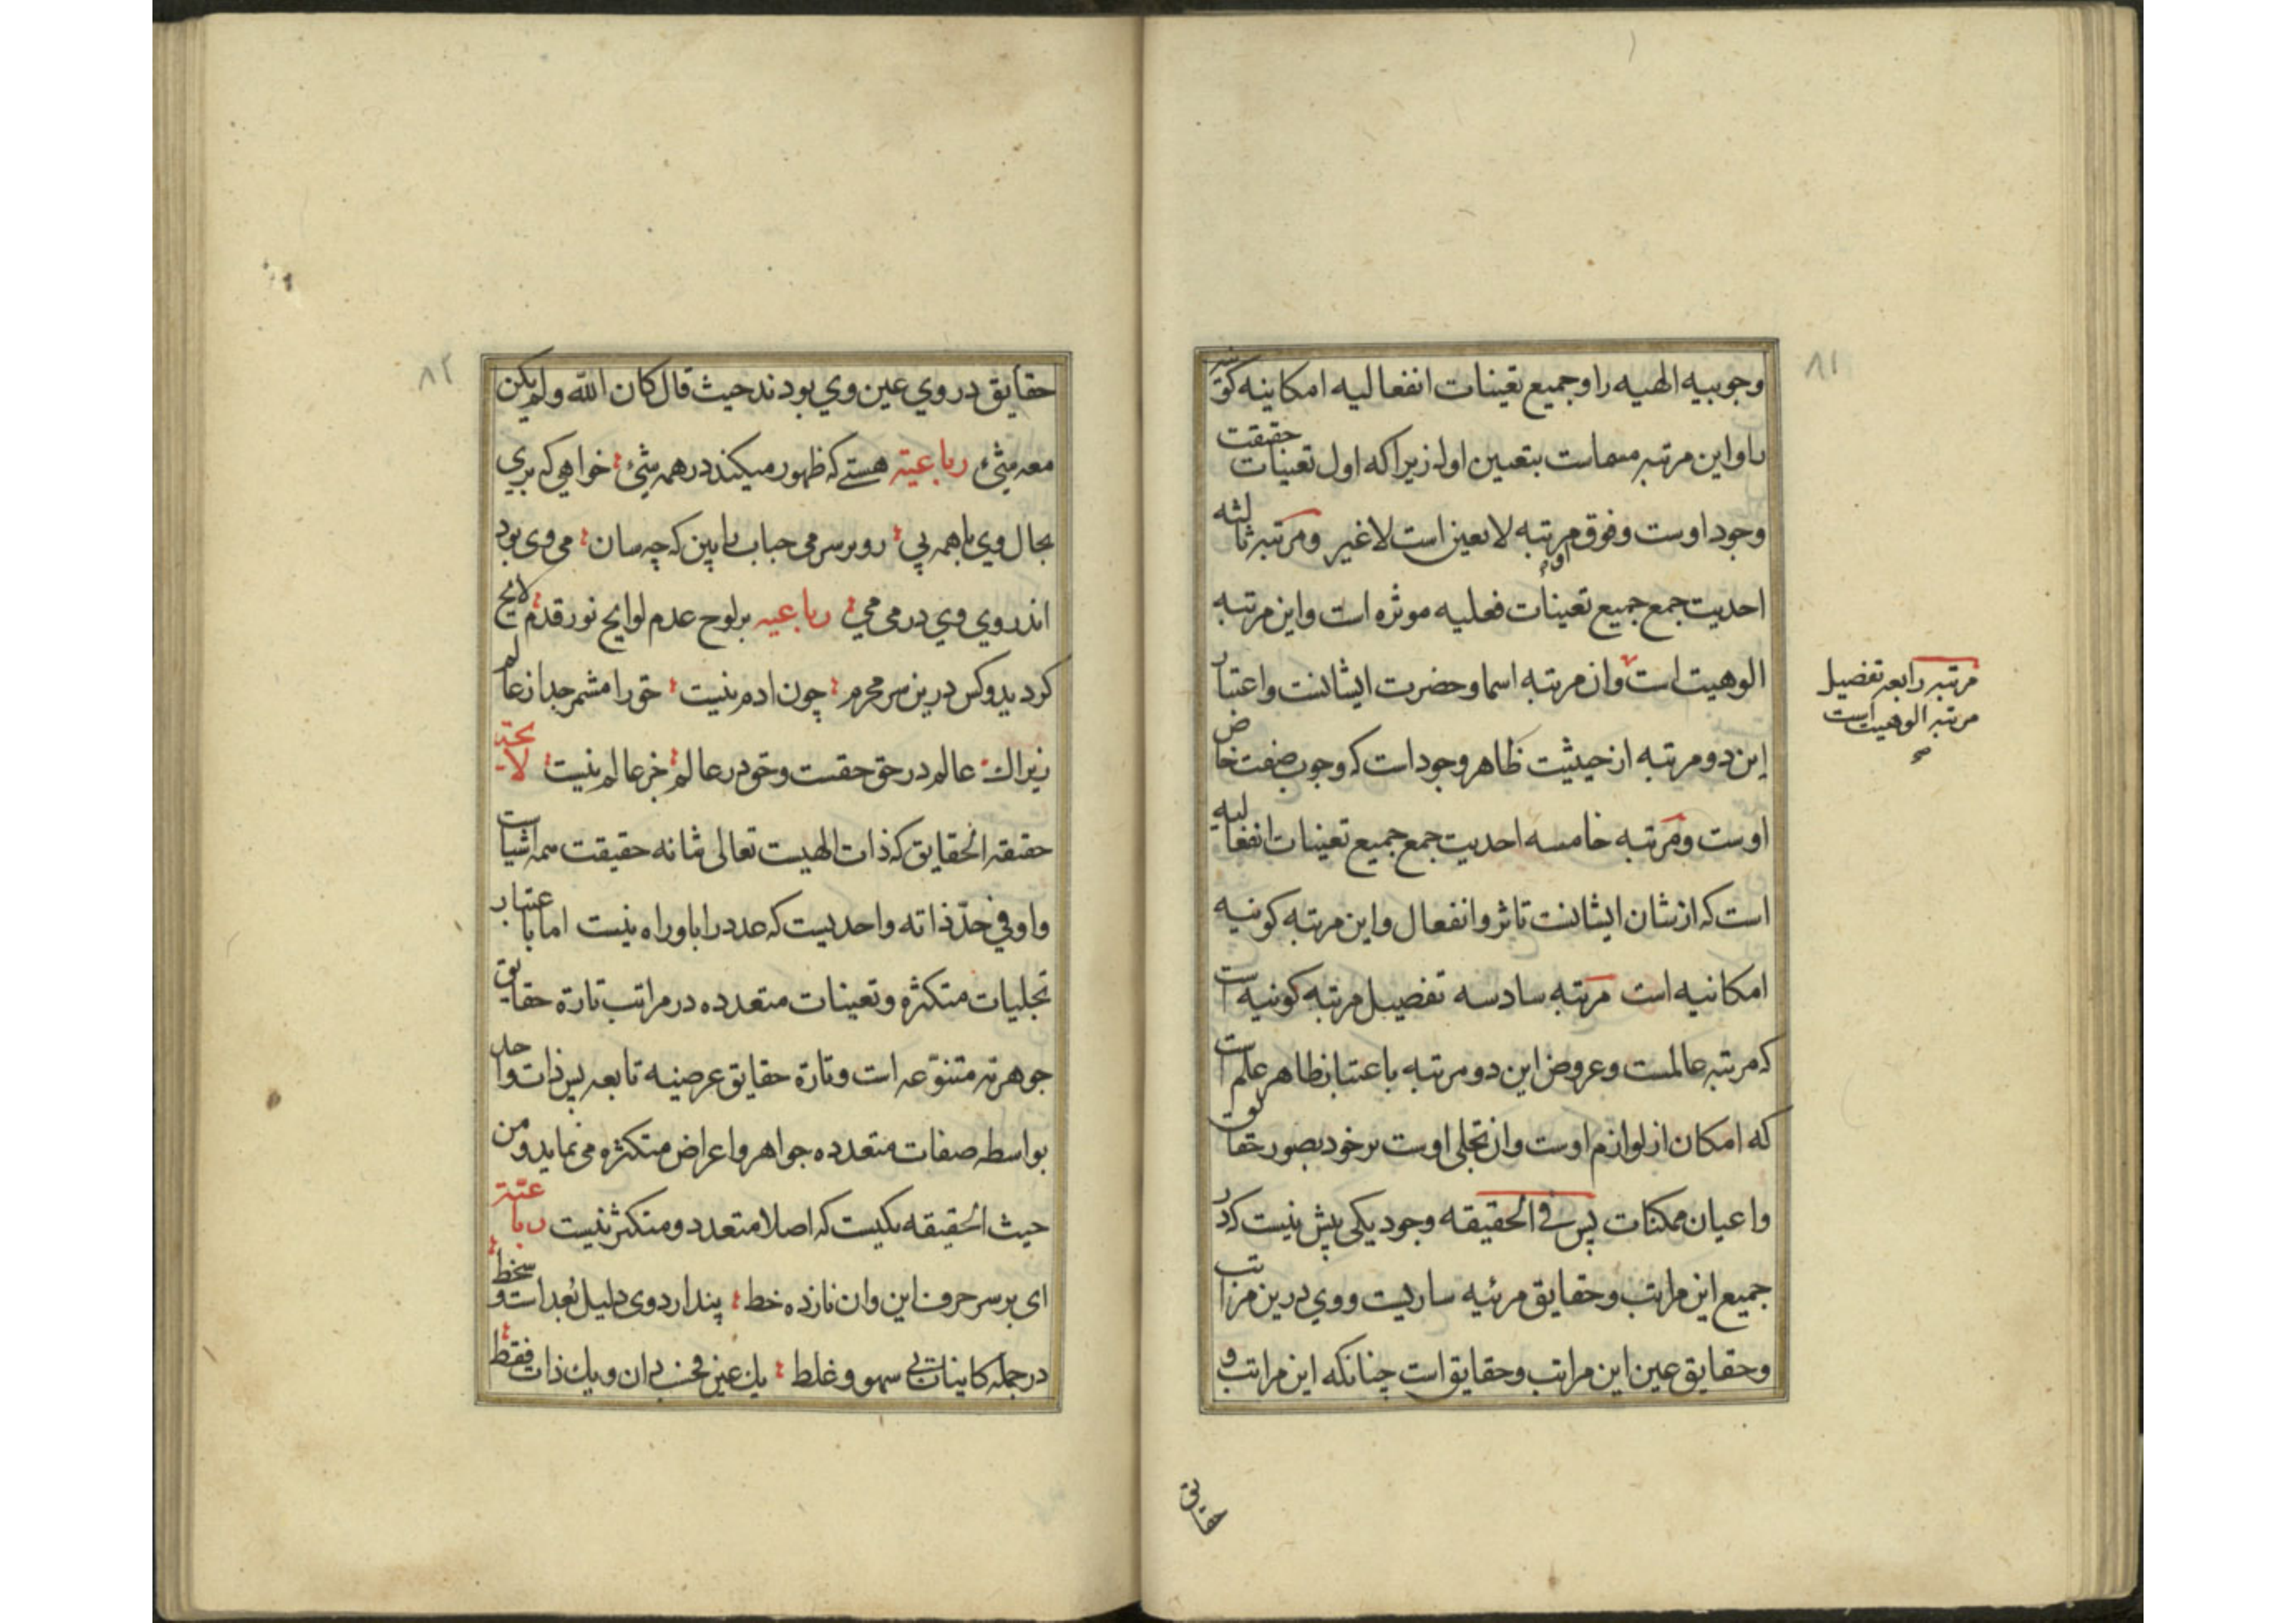 ٨١
وجوبیه الهیه را وجمیع تعینات انفعالیه امکانیه کونیه
را واین مرتبه مسماست بتعین اول زیراکه اول تعینات حقیقت
وجود اوست وفوق مرتبه او لاتعین است لاغیر ومرتبه ثالثه
احدیت جمع جمیع تعینات فعلیه موثره است واین مرتبه
الوهیت است وان مرتبه اسما وحضرت ایشانست واعتبار
مرتبه رابعه تفضیل
مرتبه الوهیت است
صح
این دو مرتبه از حیثیت ظاهر وجود است که وجوب صفت خاص
اوست ومرتبه خامسه احدیت جمع جمیع تعینات انفعالیه
است که از شان ایشانست تاثر وانفعال واین مرتبه کونیه
امکانیه است مرتبه سادسه تفصیل مرتبه کونیه است
که مرتبه عالمست وعروض این دو مرتبه باعتبار ظاهر علم است
که امکان از لوازم اوست وان تجلی اوست بر خود بصور حقایق
واعیان ممکنات پس فی الحقیقه وجود یکی بیش نیست که در
جمیع این مراتب وحقایق مرئیه ساریست ووی درین مراتب
وحقایق عین این مراتب وحقایق است چنانکه این مراتب و
حقایق
٨٢
حقایق در وی عین وی بودند حیث قال کان الله ولم یکن
معه شیٔ رباعیة هستے که ظهور میکند در همه شیٔ خواهی که بری
بحال وی با همه پی رو بر سر می حباب را بین که چه سان می وی بود
اندر وی وی در می می رباعیه بر لوح عدم لوایح نور قدم لایح
کردید وکس درین سر محرم چون ادم نیست حق را مشمر جدا ز عالم
زیراک عالم در حق حقست وحق در عالم جز عالم نیست لایحة
حقیقة الحقایق که ذات الهیست تعالی شانه حقیقت همه اشیاست
واو فی حدّ ذاته واحدیست که عدد را باو راه نیست اما باعتبار
تجلیات متکثره وتعینات متعدده در مراتب تارة حقایق
جوهریه متنوّعه است وتارة حقایق عرضیه تابعه پس ذات واحد
بواسطه صفات متعدده جواهر واعراض متکثره می نماید ومن
حیث الحقیقه یکیست که اصلا متعدد ومتکثر نیست رباعیّة
ای بر سر حرف این وان نازده خط پندار دوی دلیل بُعد است وسخط
در جمله کاینات بی سهو وغلط یك عین فحسب دان ویك ذات فقط